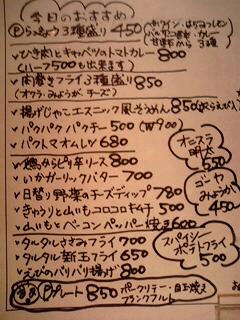 今日のおすすめ
Ⓟらっきょう3種盛り 450
赤ワイン・はちみつレモン
甘酢 から 3種
✓ひき肉とキャベツのトマトカレー 800
(ハーフ500も出来ます)
✓肉巻きフライ3種盛り 850
(オクラ・みょうが・チーズ)
✓揚げじゃこエスニック風そうめん 850
✓パクパクパクチー 500 (W900)
✓パクトマオムレツ 680
オニスラ
明太
✓鶏からピリ辛ソース 800
✓いかガーリックバター 700
✓日替り野菜のチーズディップ 780
ゴーヤ
みょうが
450
✓きゅうりと山いもコロコロキムチ 500
✓山いもとベーコンペッパー焼き 600
✓タルタルささみフライ 700
✓タルタル新玉フライ 650
✓えびのパリパリ揚げ 800
スパイシー
ポテトフライ
500
Ⓟプレート 850 ポークソテー・目玉焼き
フランクフルト